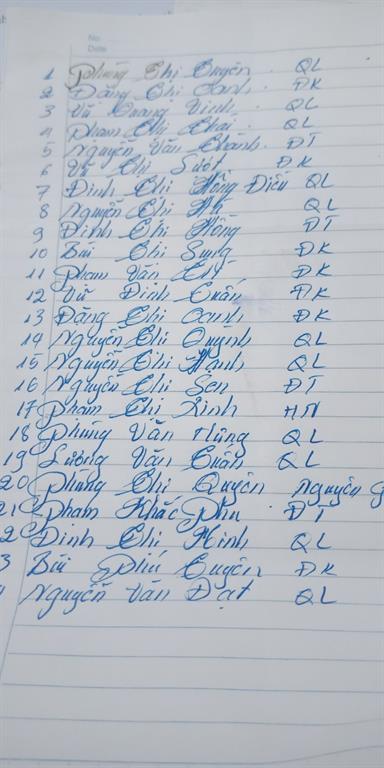 No.
Date
1 Phùng Thị Tuyên. QL
2 Đặng Thị Oanh ĐK
3 Vũ Quang Vinh. QL
4 Phạm Thị Thái. QL
5 Nguyễn Văn Thành. ĐT
6 Vũ Thị Suốt ĐK
7 Đinh Thị Hồng Diệu QL
8 Nguyễn Thị QL
9 Đinh Thị Hồng ĐT
10 Bùi Thị Sung ĐK
11 Phạm Văn ĐK
12 Vũ Đình ĐK
13 Đặng Thị Oanh ĐK
14 Nguyễn Thị Quỳnh QL
15 Nguyễn Thị Hạnh QL
16 Nguyễn Thị Sen ĐT
17 Phạm Thị Xinh HN
18 Phùng Văn Hùng QL
19 Lương Văn Tuấn QL
20 Phùng Thị Quyên Nguyên
Phạm Khắc Phu ĐT
2 Đinh Thị Minh QL
3 Bùi Phú Tuyên ĐK
Nguyễn Văn Đạt QL